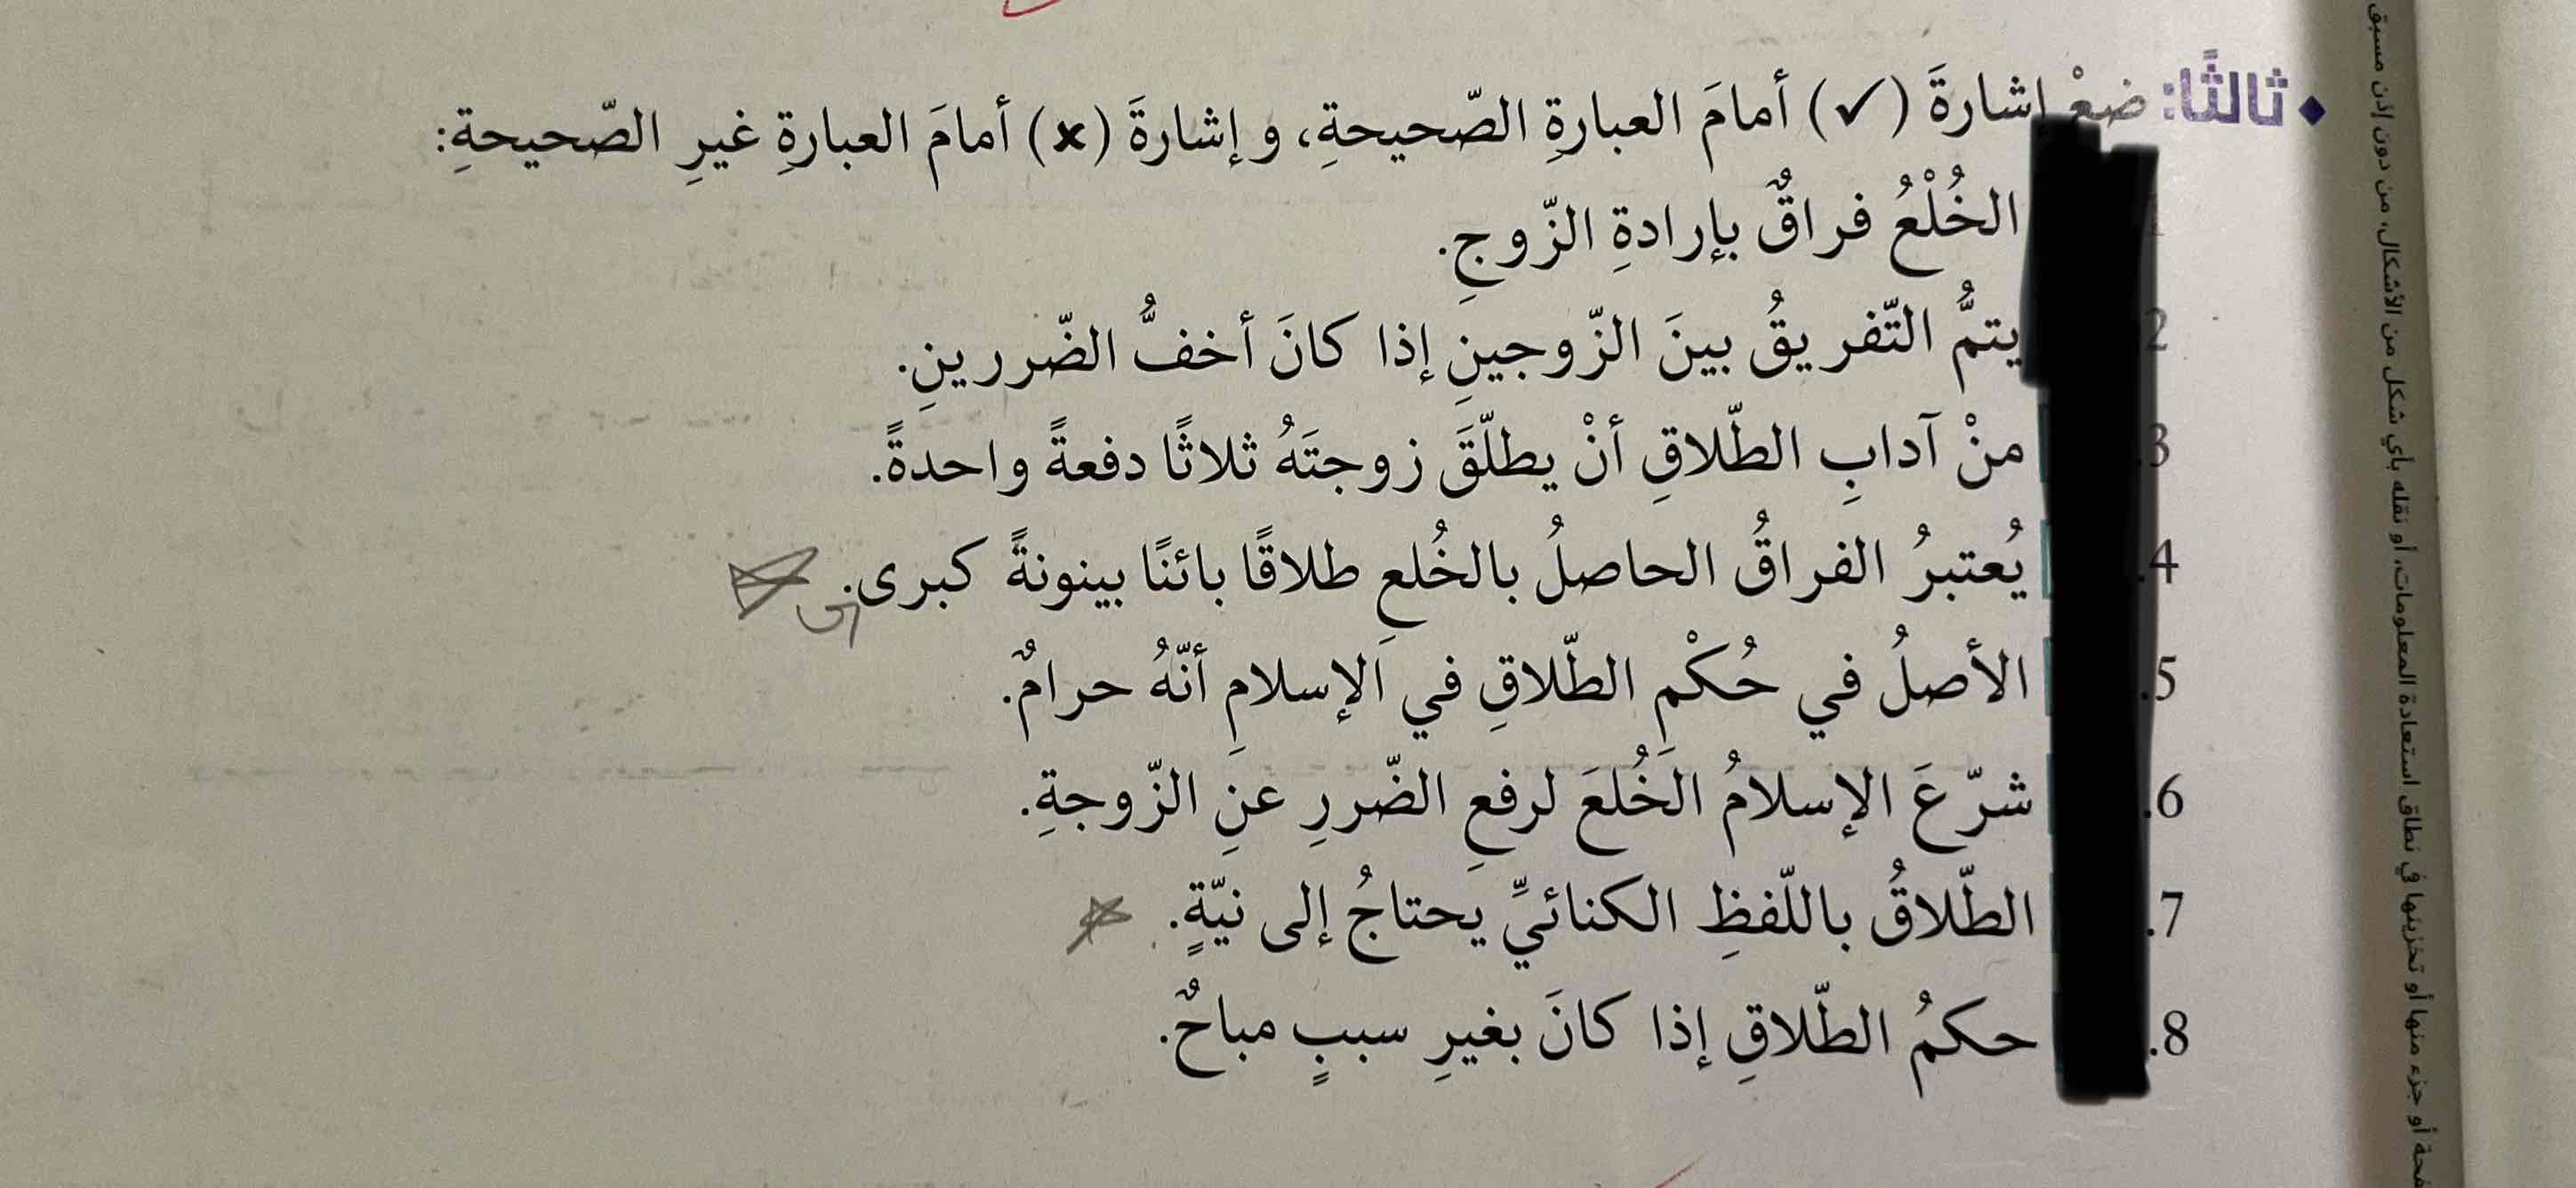 ثالثًا: ضعْ إشارةَ (✓) أمامَ العبارةِ الصّحيحةِ، وإشارةَ (×) أمامَ العبارةِ غيرِ الصّحيحةِ:
الخُلْعُ فراقٌ بإرادةِ الزّوجِ.
2 يتمُّ التّفريقُ بينَ الزّوجينِ إذا كانَ أخفُّ الضّررينِ.
3. منْ آدابِ الطّلاقِ أنْ يطلّقَ زوجتَهُ ثلاثًا دفعةً واحدةً.
4. يُعتبرُ الفراقُ الحاصلُ بالخُلعِ طلاقًا بائنًا بينونةً كبرى.
5. الأصلُ في حُكْمِ الطّلاقِ في الإسلامِ أنّهُ حرامٌ.
6. شرّعَ الإسلامُ الخُلعَ لرفعِ الضّررِ عنِ الزّوجةِ.
7. الطّلاقُ باللّفظِ الكنائيِّ يحتاجُ إلى نيّةٍ.
8. حكمُ الطّلاقِ إذا كانَ بغيرِ سببٍ مباحٌ.
أو جزء منها أو تخزينها في نطاق استعادة المعلومات، أو نقله بأي شكل من الأشكال، من دون إذن مسبق